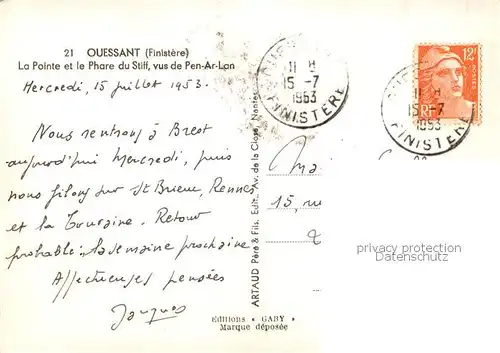 21 OUESSANT (Finistère)
La Pointe et le Phare du Stiff, vus de Pen-Ar-Lan
Mercredi, 15 juillet 1953.
Nous rentrons à Brest
aujourd'hui Mercredi, puis
nous filons sur St Brieuc, Rennes
et la Touraine. Retour
probable: la semaine prochaine
Affectueuses pensées
Jacques
ARTAUD Père & Fils, Edit., Av. de la Close, Nantes
Editions "GABY"
Marque déposée
11 H
15-7
1953
FINISTERE
12F
POSTES
RF
11 H
15-7
1953
FINISTERE
15, rue
privacy protection
Datenschutz